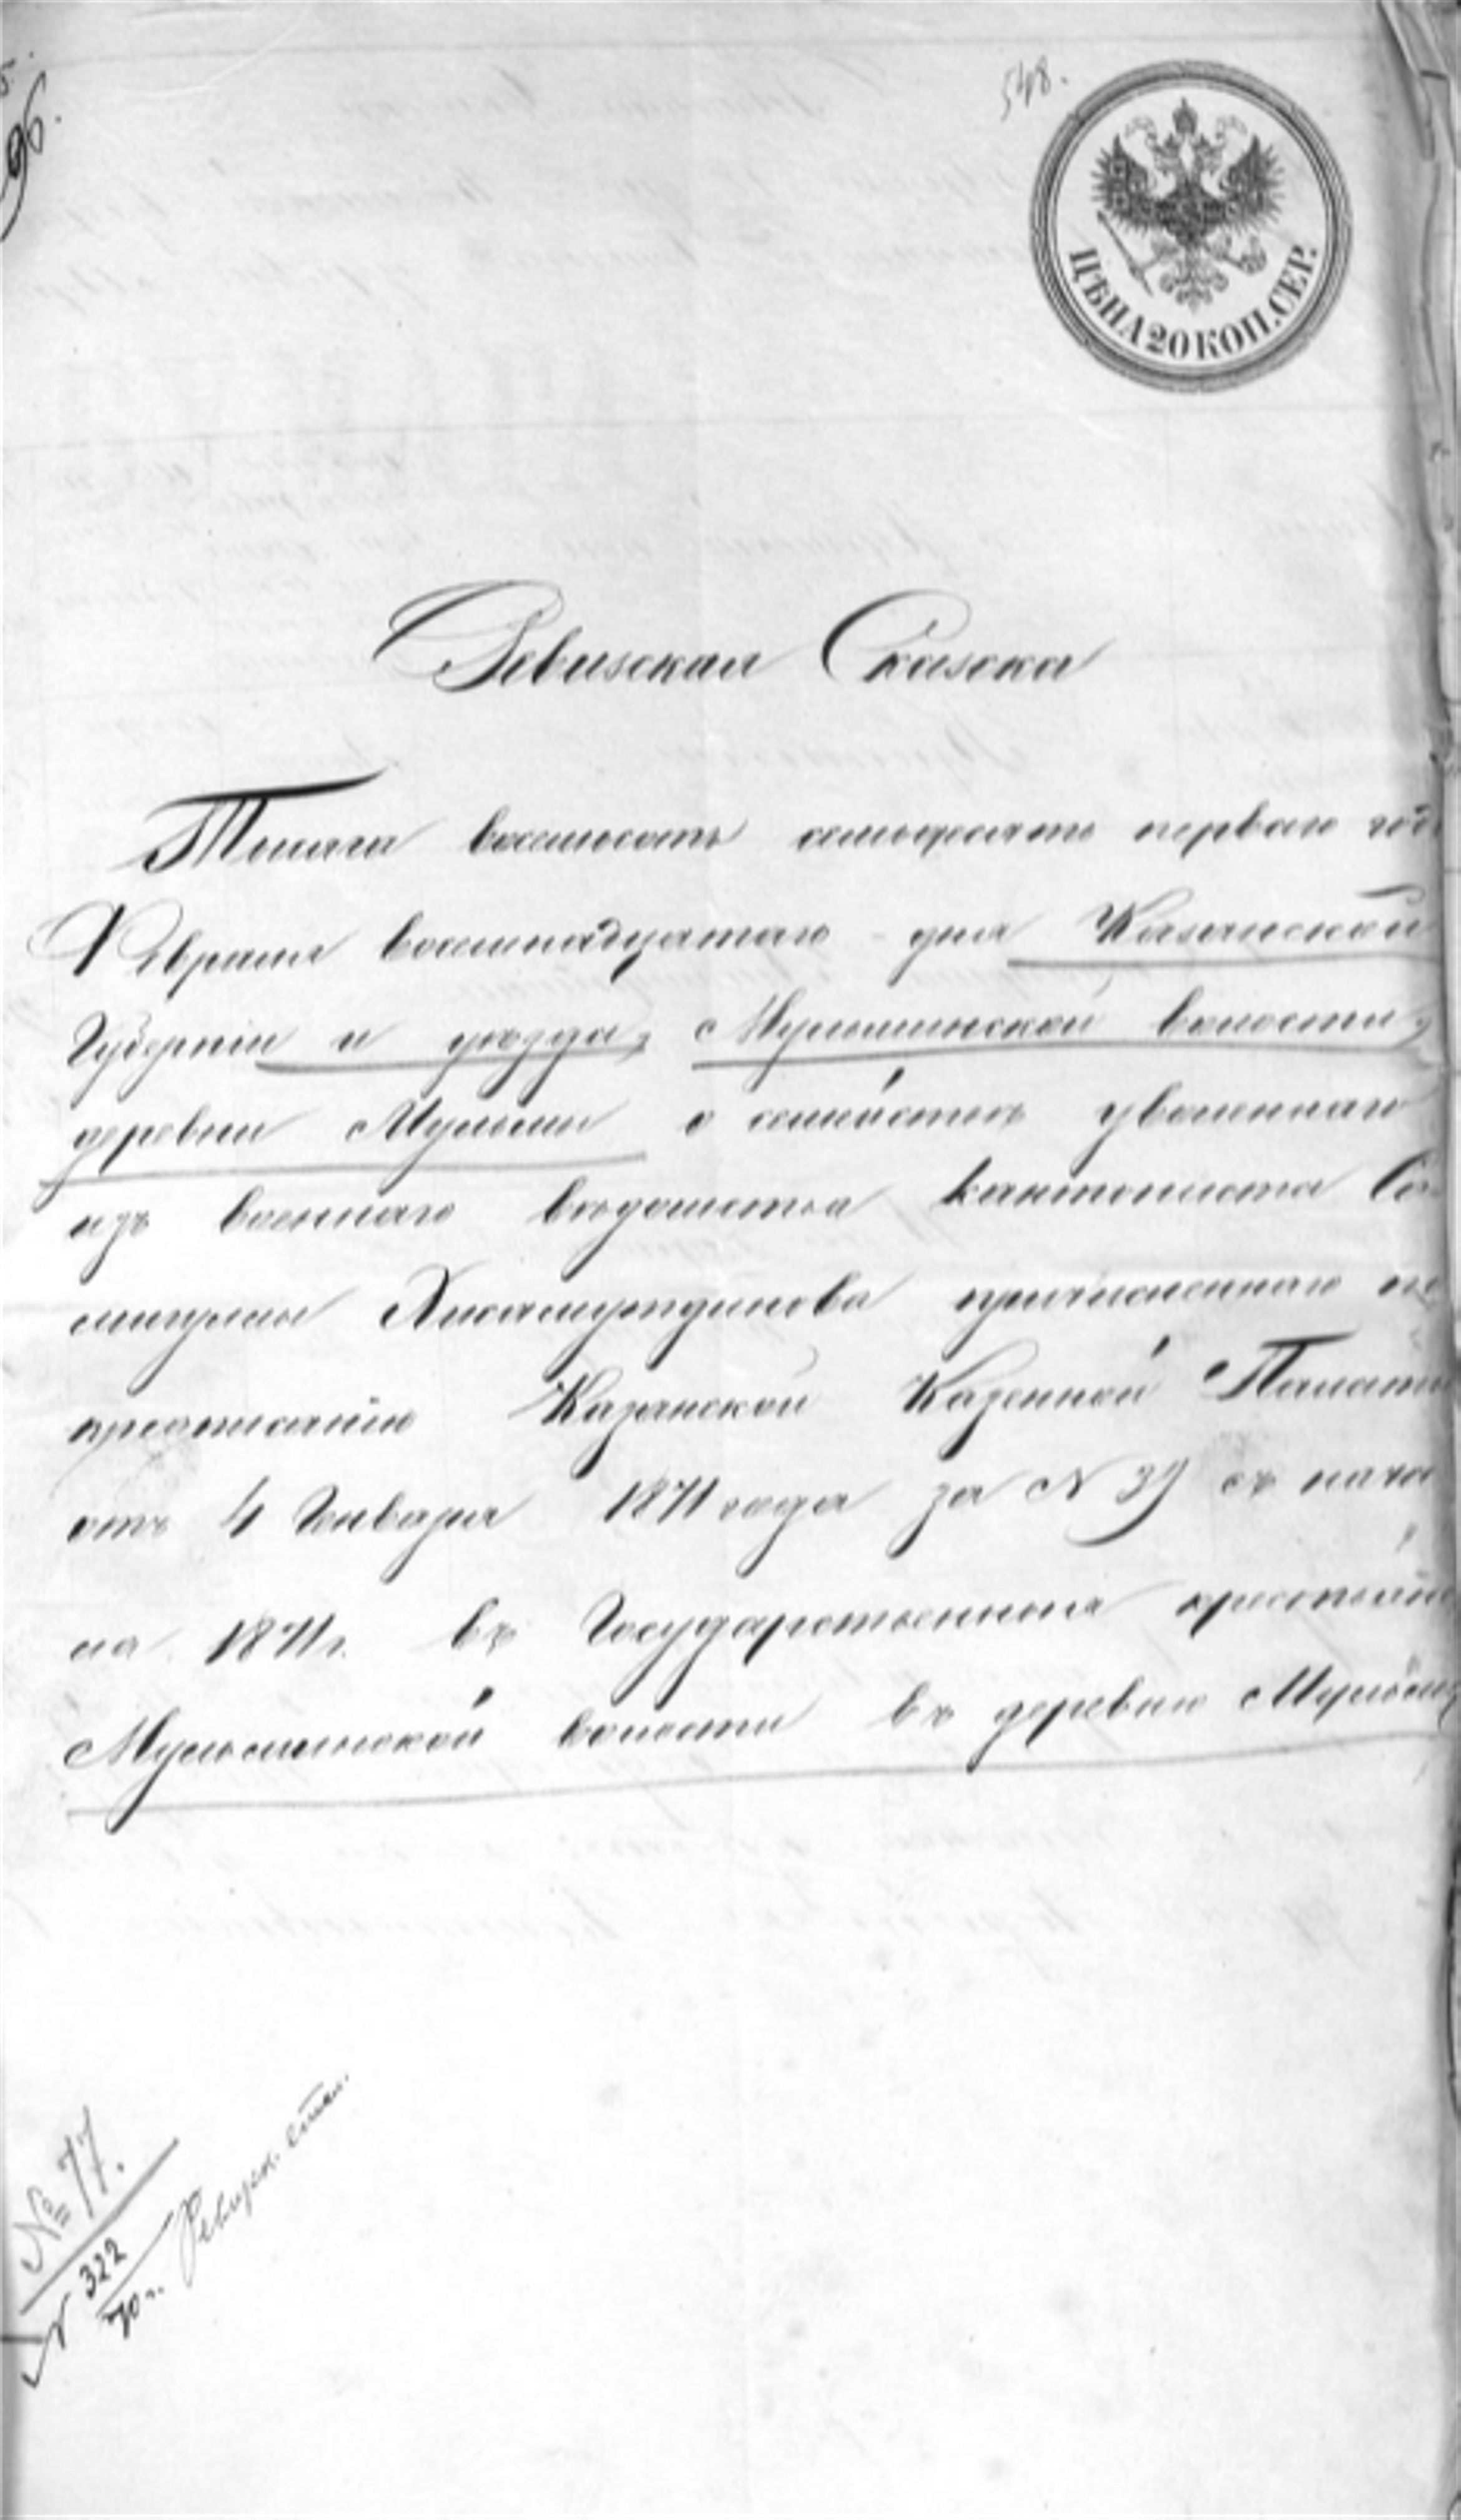 548.
96.
ЦѢНА 20 КОП. СЕР.
Ревизская Сказка
Тысяча восемьсотъ семьдесятъ перваго года
Февраля восемнадцатаго дня Казанской
Губерніи и уѣзда, Мульминской волости,
деревни Мульмы о семействѣ уволеннаго
изъ военнаго вѣдомства кантониста
Хисамутдинова причисленнаго по
предписанію Казанской Казенной Палаты
отъ 4 Января 1871 года за N 39 съ нача
ла 1871 г. въ Государственныя крестьяне
Мульминской волости въ деревню Мульму
№ 77.
N 322
70 г. Ревизск. стол.